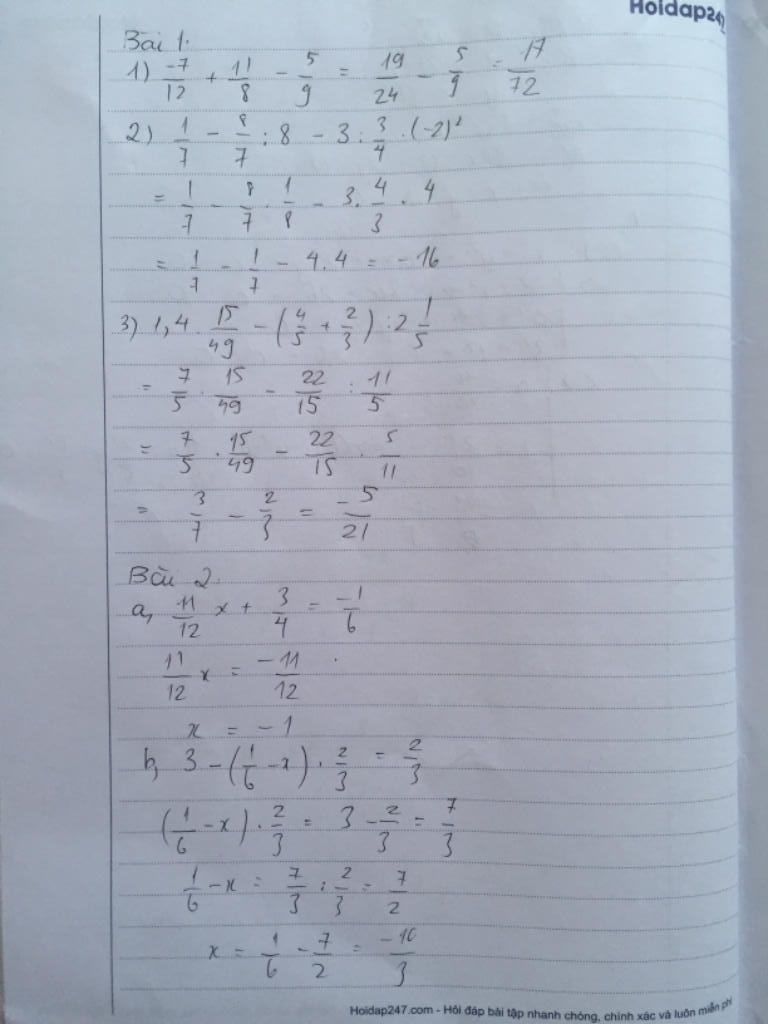 Hoidap247
Bài 1.
1) -7/12 + 11/8 - 5/9 = 19/24 - 5/9 = 17/72
2) 1/7 - 8/7 : 8 - 3 : 3/4 . (-2)²
= 1/7 - 8/7 . 1/8 - 3 . 4/3 . 4
= 1/7 - 1/7 - 4.4 = -16
3) 1,4 . 15/49 - (4/5 + 2/3) : 2 1/5
= 7/5 . 15/49 - 22/15 : 11/5
= 7/5 . 15/49 - 22/15 . 5/11
= 3/7 - 2/3 = -5/21
Bài 2.
a, 11/12 x + 3/4 = -1/6
11/12 x = -11/12
x = -1
b, 3 - (1/6 - x) . 2/3 = 2/3
(1/6 - x) . 2/3 = 3 - 2/3 = 7/3
1/6 - x = 7/3 : 2/3 = 7/2
x = 1/6 - 7/2 = -10/3
Hoidap247.com - Hỏi đáp bài tập nhanh chóng, chính xác và luôn miễn phí